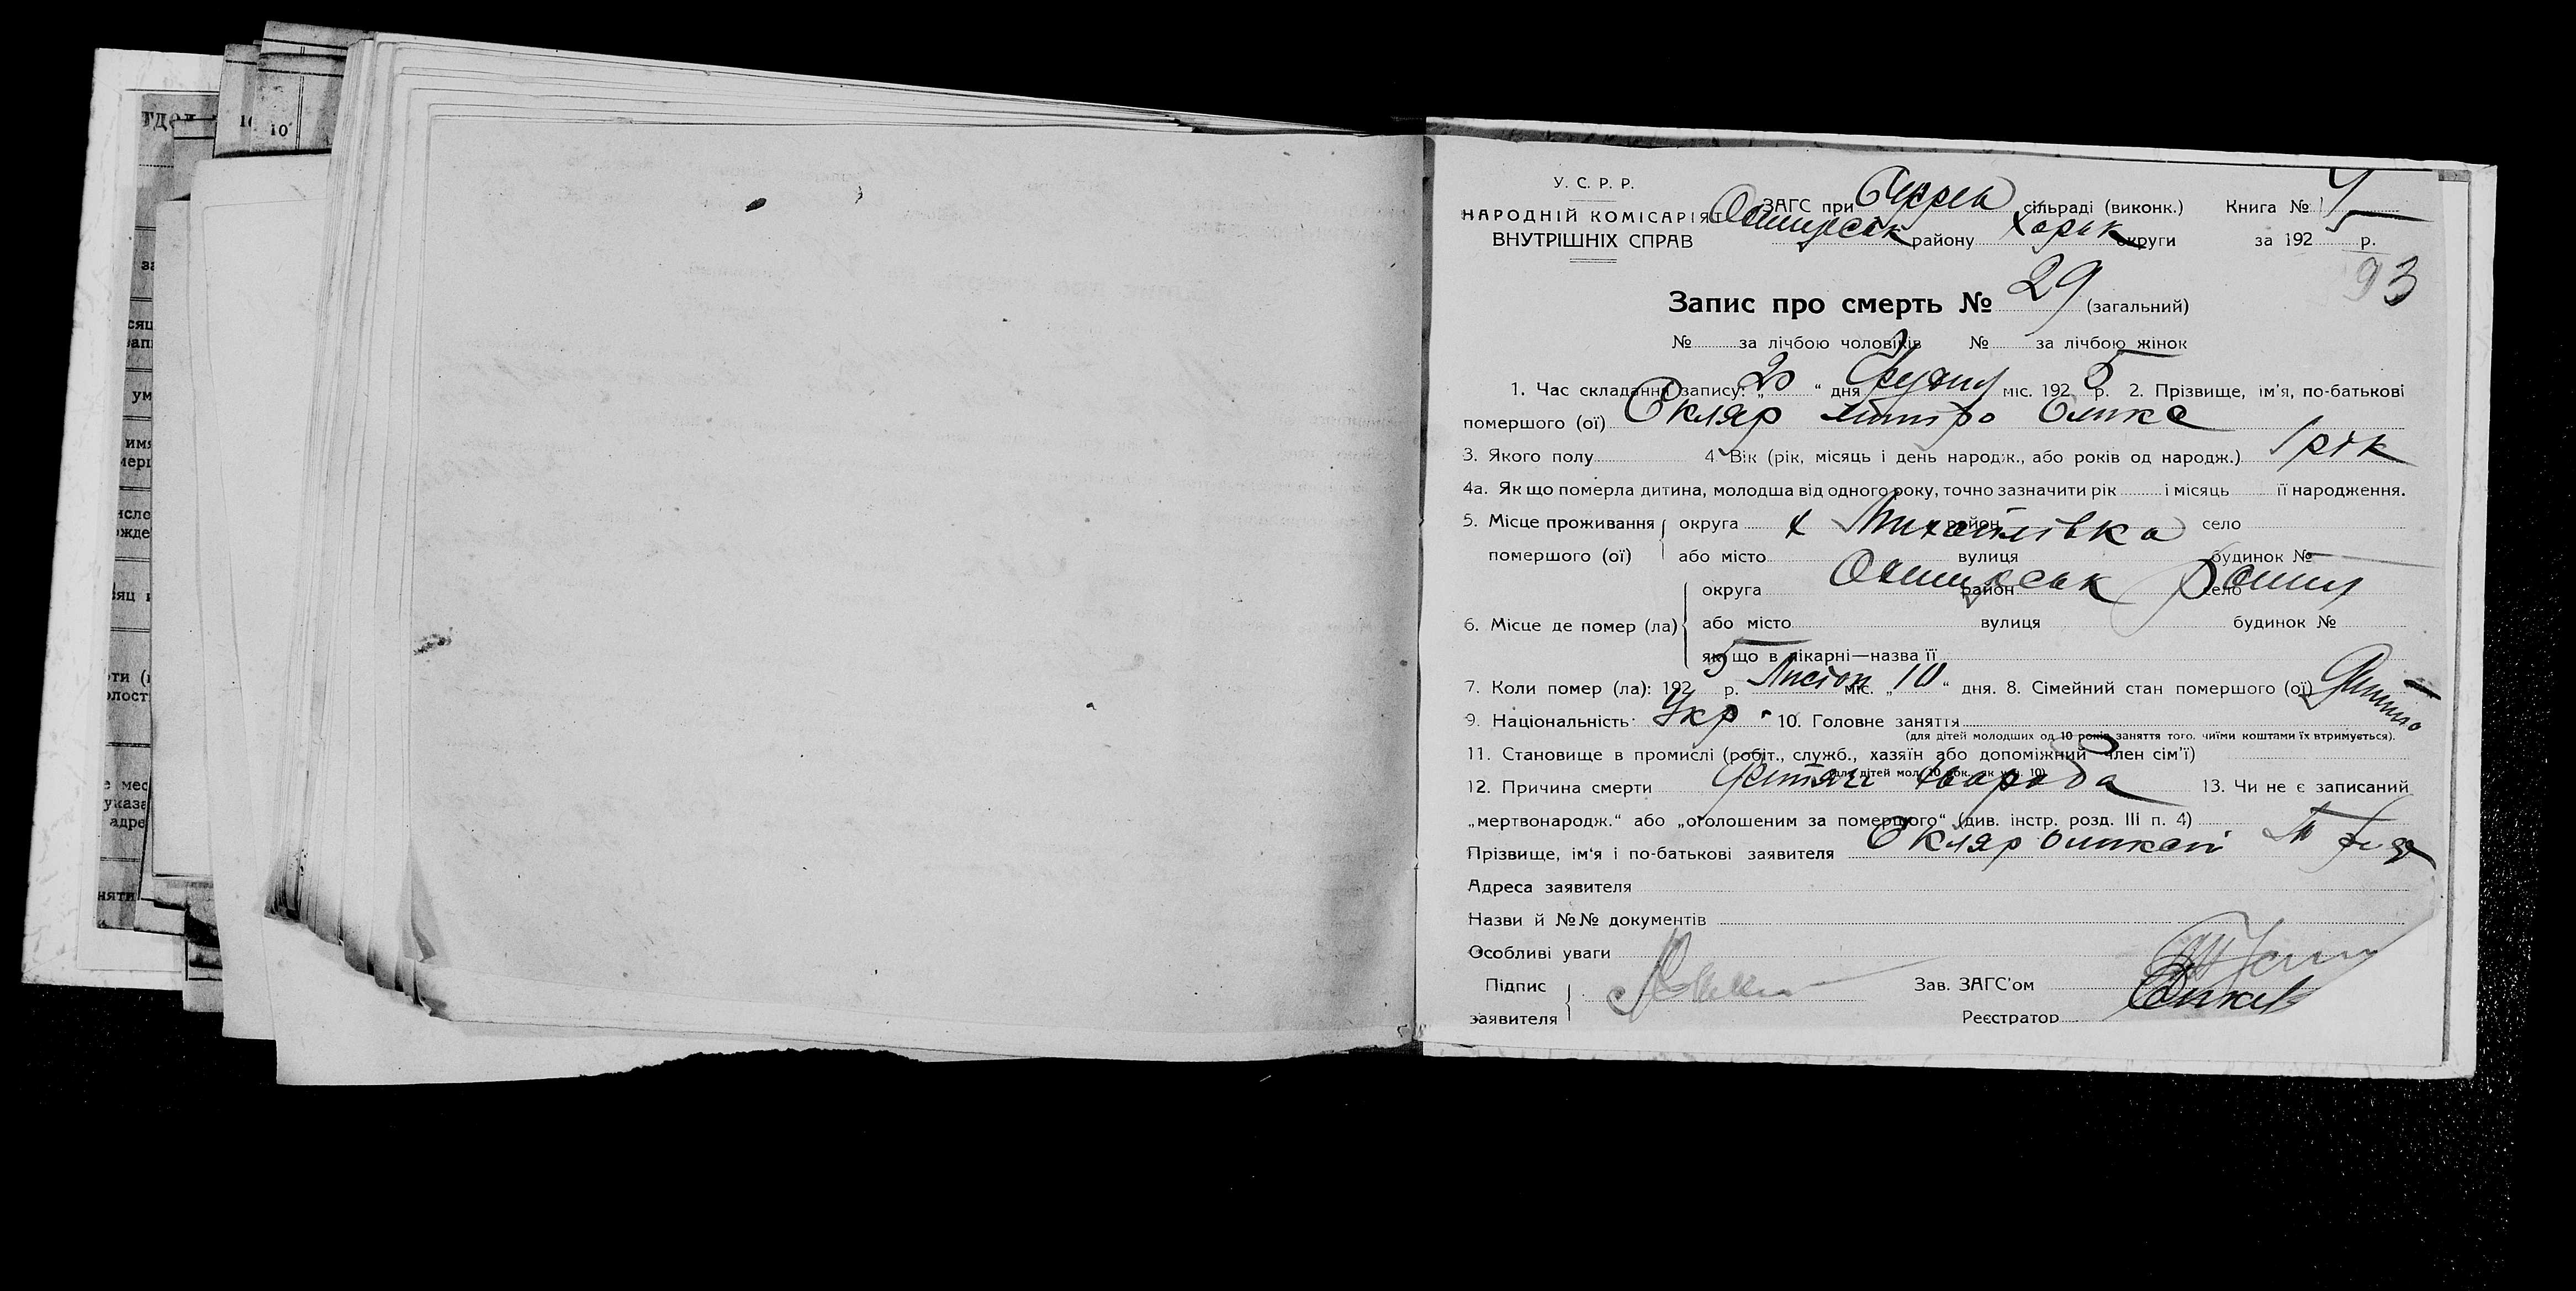 тдел
10
10
за
сяц
зап
ум
имя
мер
исло
ожде
яц и
ти (
олост
е мес
указа
адре
няти
У. С. Р. Р.
НАРОДНІЙ КОМІСАРІЯТ
ВНУТРІШНІХ СПРАВ
ЗАГС при сільраді (виконк.) Книга №
району Харьк округи за 1925 р.
93
Запис про смерть № 29 (загальний)
№ за лічбою чоловіків № за лічбою жінок
1. Час складання запису: „20“ дня Грудня міс. 1925 р. 2. Прізвище, ім'я, по-батькові
помершого (ої) Скляр Митро
3. Якого полу 4. Вік (рік, місяць і день народж., або років од народж.) 1 рік
4а. Як що померла дитина, молодша від одного року, точно зазначити рік і місяць її народження.
5. Місце проживання округа х Михайлівка район село
помершого (ої) або місто вулиця будинок №
округа район село
6. Місце де помер (ла) або місто вулиця будинок №
як що в лікарні—назва її
7. Коли помер (ла): 1925 р. Листоп міс. „10“ дня. 8. Сімейний стан помершого (ої)
9. Національність Укр. 10. Головне заняття
(для дітей молодших од 10 років заняття того, чиїми коштами їх втримується).
11. Становище в промислі (робіт., служб., хазяїн або допоміжний член сім'ї)
(для дітей мол. 10 рок. як у п. 10)
12. Причина смерти хвороба 13. Чи не є записаний
„мертвонародж.“ або „оголошеним за помершого“ (див. інстр. розд. III п. 4)
Прізвище, ім'я і по-батькові заявителя Скляр
Адреса заявителя
Назви й №№ документів
Особливі уваги
Підпис
заявителя
Зав. ЗАГС'ом
Реєстратор